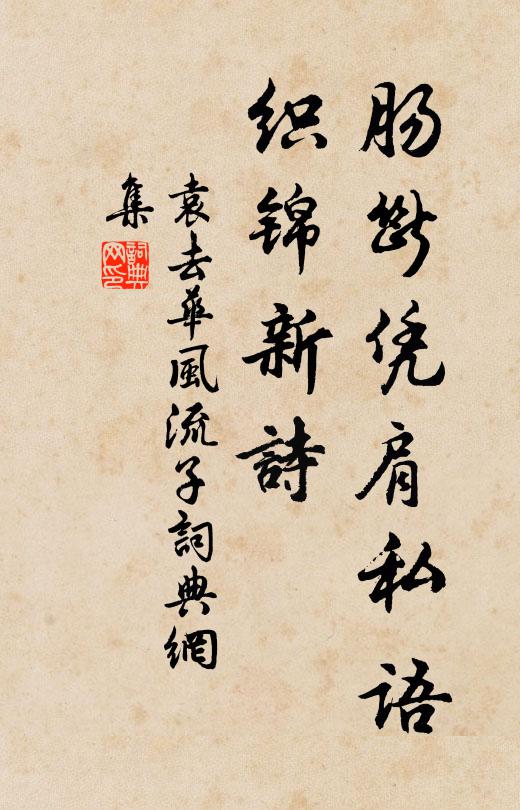 肠斷凭肩私语
织锦新詩
袁去華風流子詞典網
集
詞典
网印